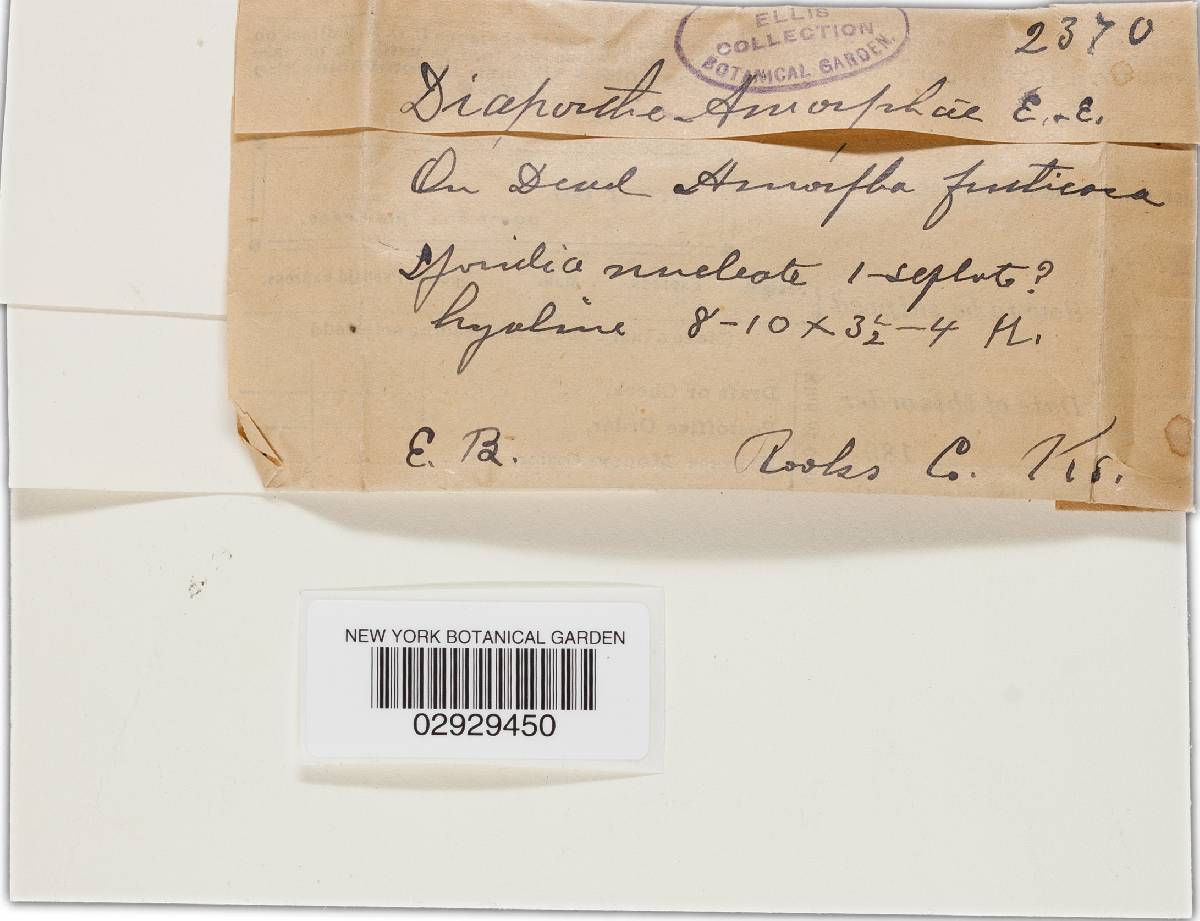 ELLIS
COLLECTION
BOTANICAL GARDEN.
2370
Diaporthe Amorphae E. & E.
On Dead Amorpha fruticosa
Sporidia nucleate 1-septate?
hyaline 8-10 x 3½-4 μ.
E. B. Rooks Co. Ks.
NEW YORK BOTANICAL GARDEN
02929450